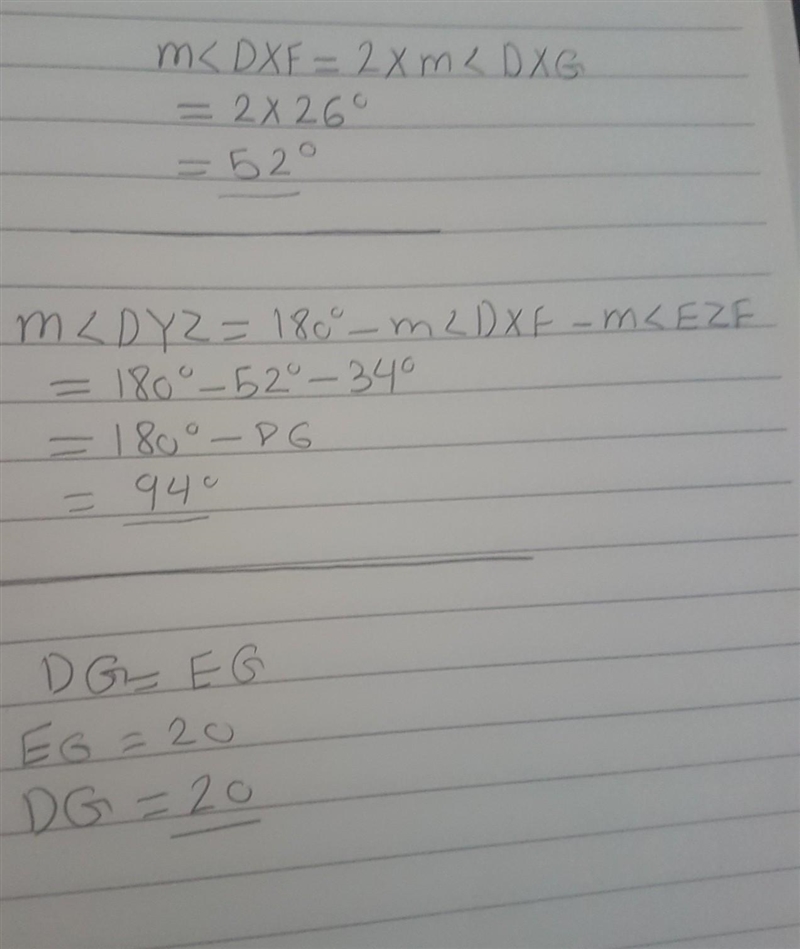 m<DXF = 2 X m< DXG
= 2 X 26°
= 52°
m<DYZ = 180° - m<DXF - m<EZF
= 180° - 52° - 34°
= 180° - DG
= 94°
DG = EG
EG = 20
DG = 20